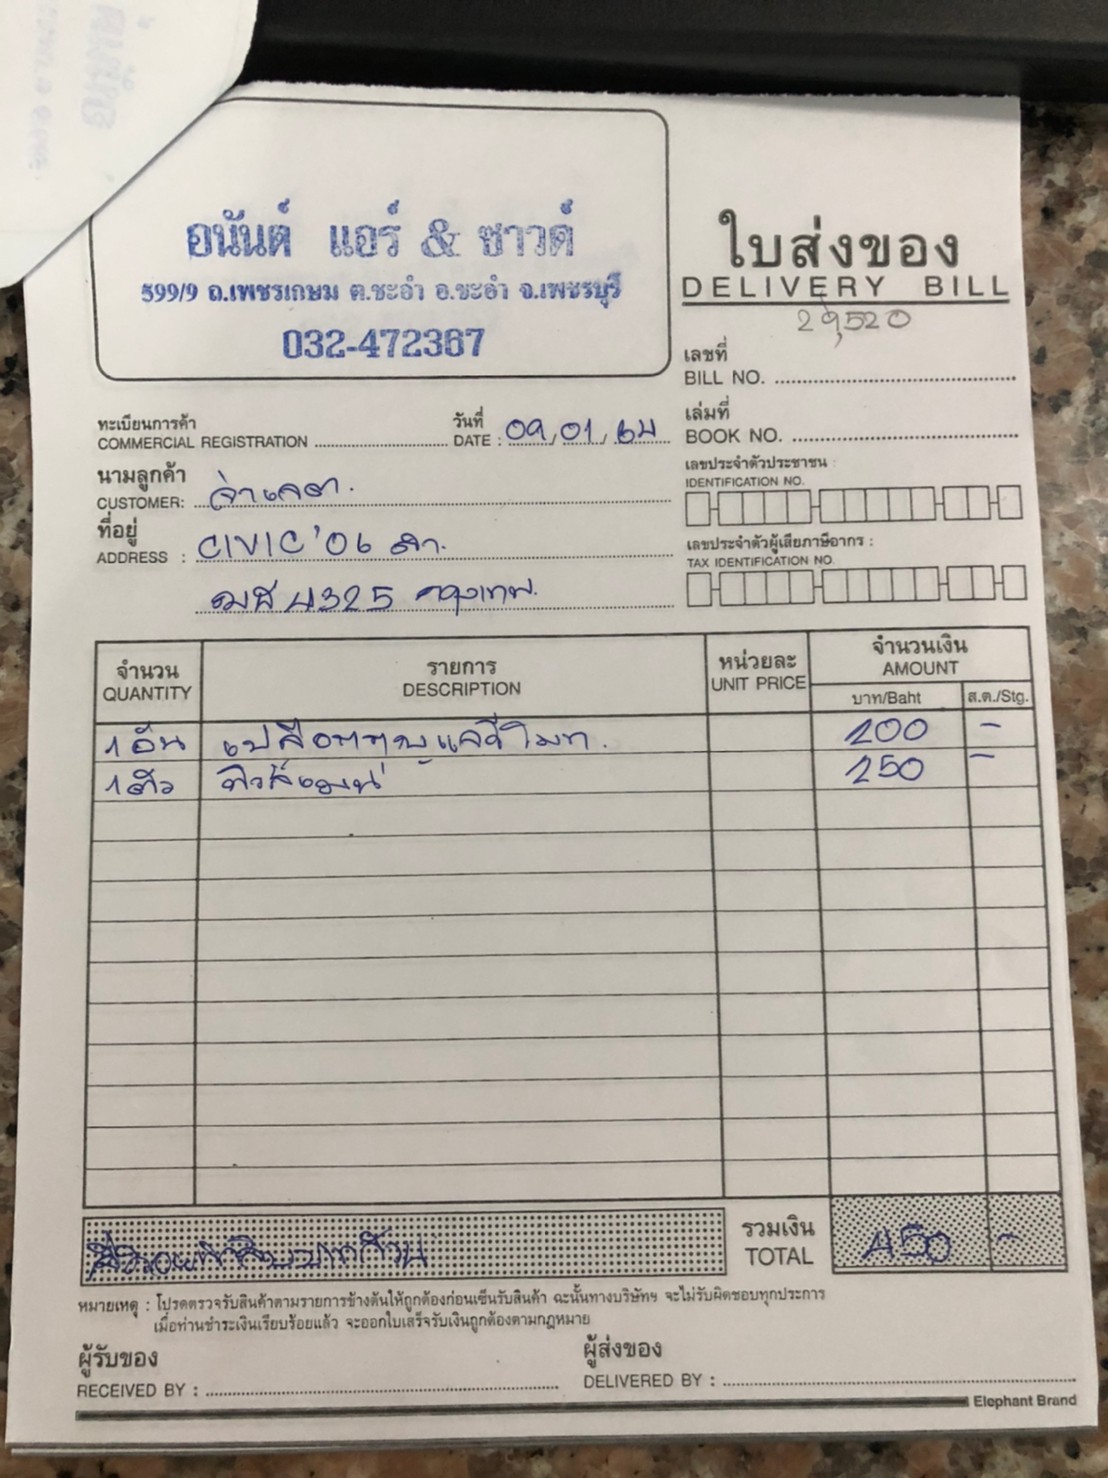 อนันต์ แอร์ & ซาวด์
599/9 ถ.เพชรเกษม ต.ชะอำ อ.ชะอำ จ.เพชรบุรี
032-472367
ใบส่งของ
DELIVERY BILL
29,520
เลขที่
BILL NO.
เล่มที่
BOOK NO.
ทะเบียนการค้า
COMMERCIAL REGISTRATION
วันที่
DATE : 09/01/64
นามลูกค้า
CUSTOMER: จ่าเจตา.
ที่อยู่
ADDRESS : CIVIC '06 ดำ.
4325 กรุงเทพ.
เลขประจำตัวประชาชน :
IDENTIFICATION NO.
เลขประจำตัวผู้เสียภาษีอากร :
TAX IDENTIFICATION NO.
จำนวน รายการ หน่วยละ จำนวนเงิน
QUANTITY DESCRIPTION UNIT PRICE AMOUNT
บาท/Baht ส.ต./Stg.
1 อัน เปลือกกุญแจรีโมท. 200 -
1 ตัว 250 -
สี่ร้อยห้าสิบบาทถ้วน
รวมเงิน
TOTAL 450 -
หมายเหตุ : โปรดตรวจรับสินค้าตามรายการข้างต้นให้ถูกต้องก่อนเซ็นรับสินค้า ฉะนั้นทางบริษัทฯ จะไม่รับผิดชอบทุกประการ
เมื่อท่านชำระเงินเรียบร้อยแล้ว จะออกใบเสร็จรับเงินถูกต้องตามกฎหมาย
ผู้รับของ
RECEIVED BY :
ผู้ส่งของ
DELIVERED BY :
Elephant Brand